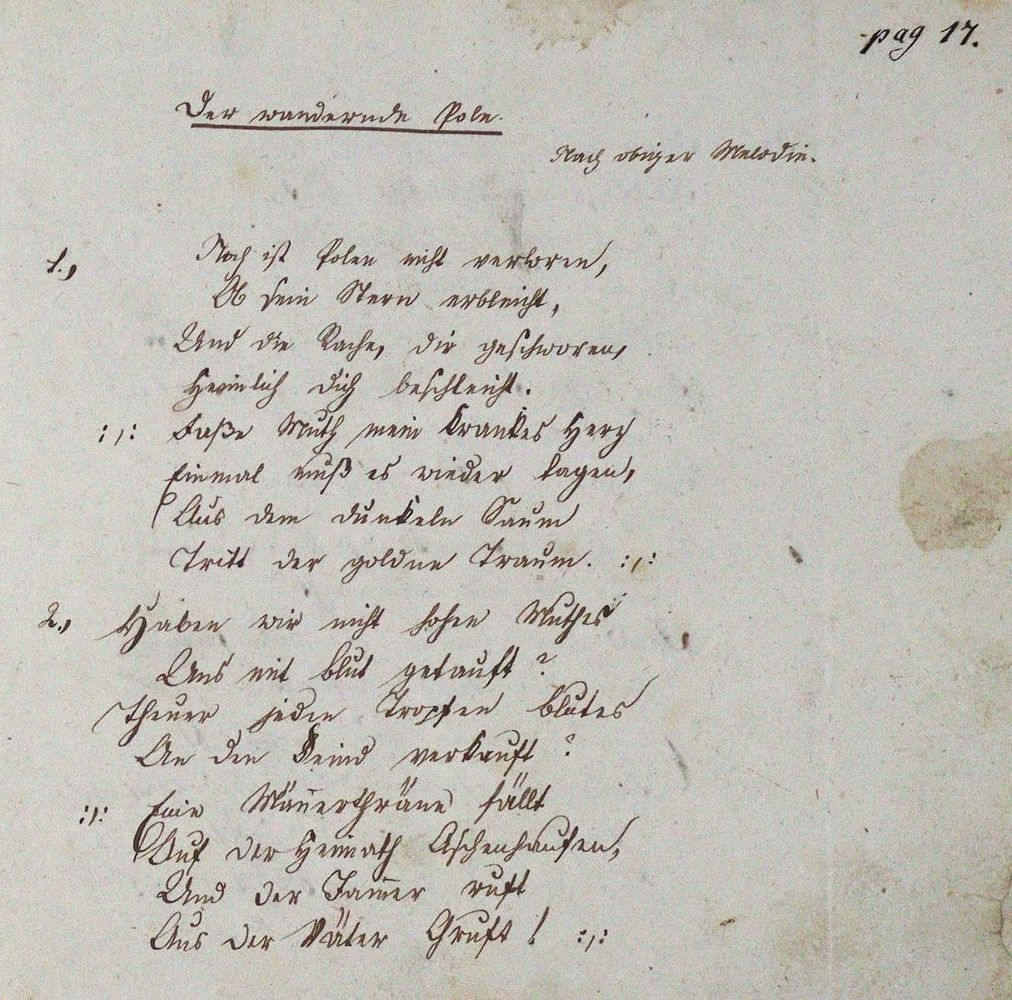 pag 17.
Der wandernde Pole.
Nach obiger Melodie.
1., Noch ist Polen nicht verloren,
Ob sein Stern erbleicht,
Und die Rache, dir geschworen,
Heimlich dich beschleicht.
:,: Faße Muth mein krankes Herz
Einmal muß es wieder tagen,
Aus dem dunkeln Saum
Tritt der goldne Traum. :,:
2., Haben wir nicht hohen Muthes
Uns mit Blut getauft?
Theuer jeden Tropfen Blutes
An den Feind verkauft?
:,: Eine Män̄erthräne fällt
Auf der Heimath Aschenhaufen,
Und der Jam̄er ruft
Aus der Väter Gruft! :,: